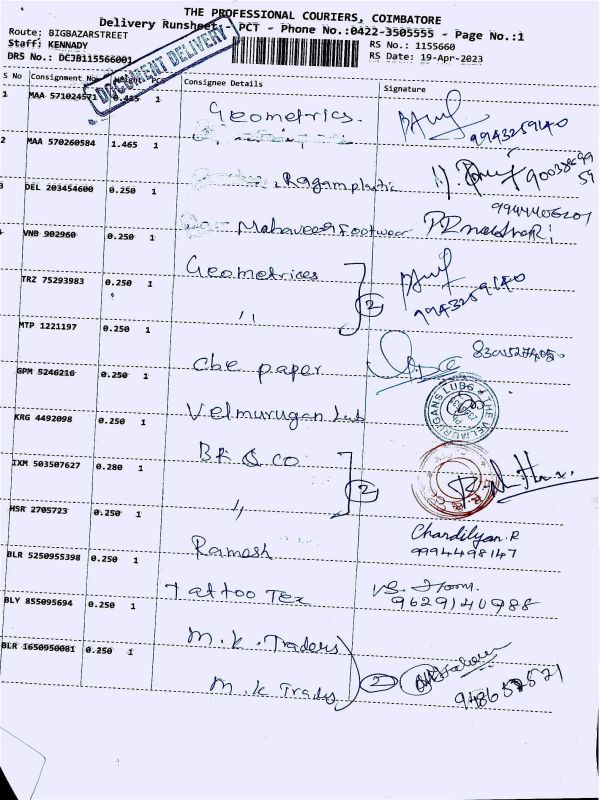 THE PROFESSIONAL COURIERS, COIMBATORE
Delivery Runsheet - PCT - Phone No.:0422-3505555 - Page No.:1
Route: BIGBAZARSTREET
Staff: KENNADY
RS No.: 1155660
DRS No.: DCJB115566001
RS Date: 19-Apr-2023
DOCUMENT DELIVERY
S No Consignment No Weight PCS Consignee Details Signature
1 MAA 571024571 0.415 1 Geometrics.
9943259140
2 MAA 570260584 1.465 1
3 DEL 203454600 0.250 1 Ragamplastic
9944406201
4 VNB 902960 0.250 1 Mahaveer Footwear
TRZ 75293983 0.250 1 Geometrices 2
9943259140
MTP 1221197 0.250 1 "
GPM 5246216 0.250 1 cbe paper
KRG 4492098 0.250 1 Velmurugan Lub
THE VELMURUGANS LUBS
IXM 503507627 0.280 1 BR & CO 2
HSR 2705723 0.250 1 "
BLR 5250955398 0.250 1 Ramesh Chandilyan.R
9994498147
BLY 855095694 0.250 1 Tattoo Tex
9629140988
BLR 1650950081 0.250 1 M.K. Traders
M.K Trades 2